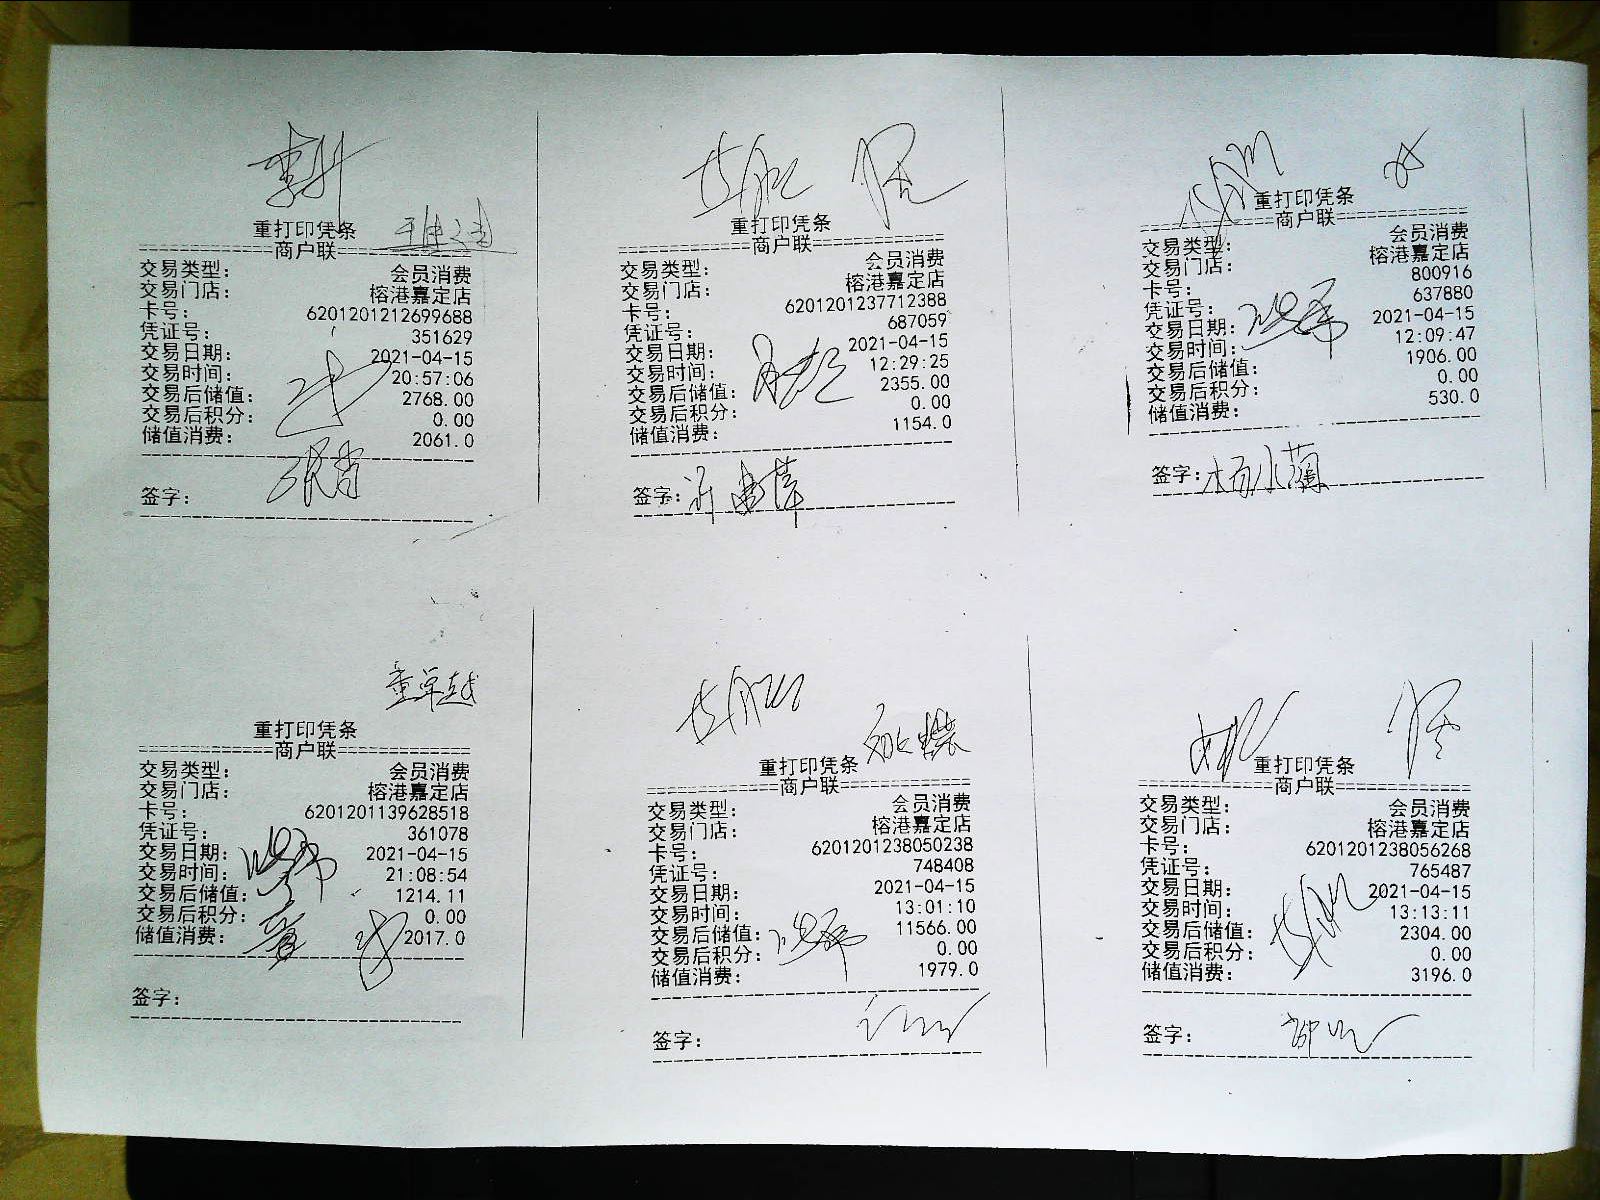 重打印凭条
商户联
交易类型： 会员消费
交易门店： 榕港嘉定店
卡号： 6201201212699688
凭证号： 351629
交易日期： 2021-04-15
交易时间： 20:57:06
交易后储值： 2768.00
交易后积分： 0.00
储值消费： 2061.0
签字：
重打印凭条
商户联
交易类型： 会员消费
交易门店： 榕港嘉定店
卡号： 6201201237712388
凭证号： 687059
交易日期： 2021-04-15
交易时间： 12:29:25
交易后储值： 2355.00
交易后积分： 0.00
储值消费： 1154.0
签字：
重打印凭条
商户联
交易类型： 会员消费
交易门店： 榕港嘉定店
卡号： 800916
凭证号： 637880
交易日期： 2021-04-15
交易时间： 12:09:47
交易后储值： 1906.00
交易后积分： 0.00
储值消费： 530.0
签字：
童卓越
重打印凭条
商户联
交易类型： 会员消费
交易门店： 榕港嘉定店
卡号： 6201201139628518
凭证号： 361078
交易日期： 2021-04-15
交易时间： 21:08:54
交易后储值： 1214.11
交易后积分： 0.00
储值消费： 2017.0
签字：
重打印凭条
商户联
交易类型： 会员消费
交易门店： 榕港嘉定店
卡号： 6201201238050238
凭证号： 748408
交易日期： 2021-04-15
交易时间： 13:01:10
交易后储值： 11566.00
交易后积分： 0.00
储值消费： 1979.0
签字：
重打印凭条
商户联
交易类型： 会员消费
交易门店： 榕港嘉定店
卡号： 6201201238056268
凭证号： 765487
交易日期： 2021-04-15
交易时间： 13:13:11
交易后储值： 2304.00
交易后积分： 0.00
储值消费： 3196.0
签字：